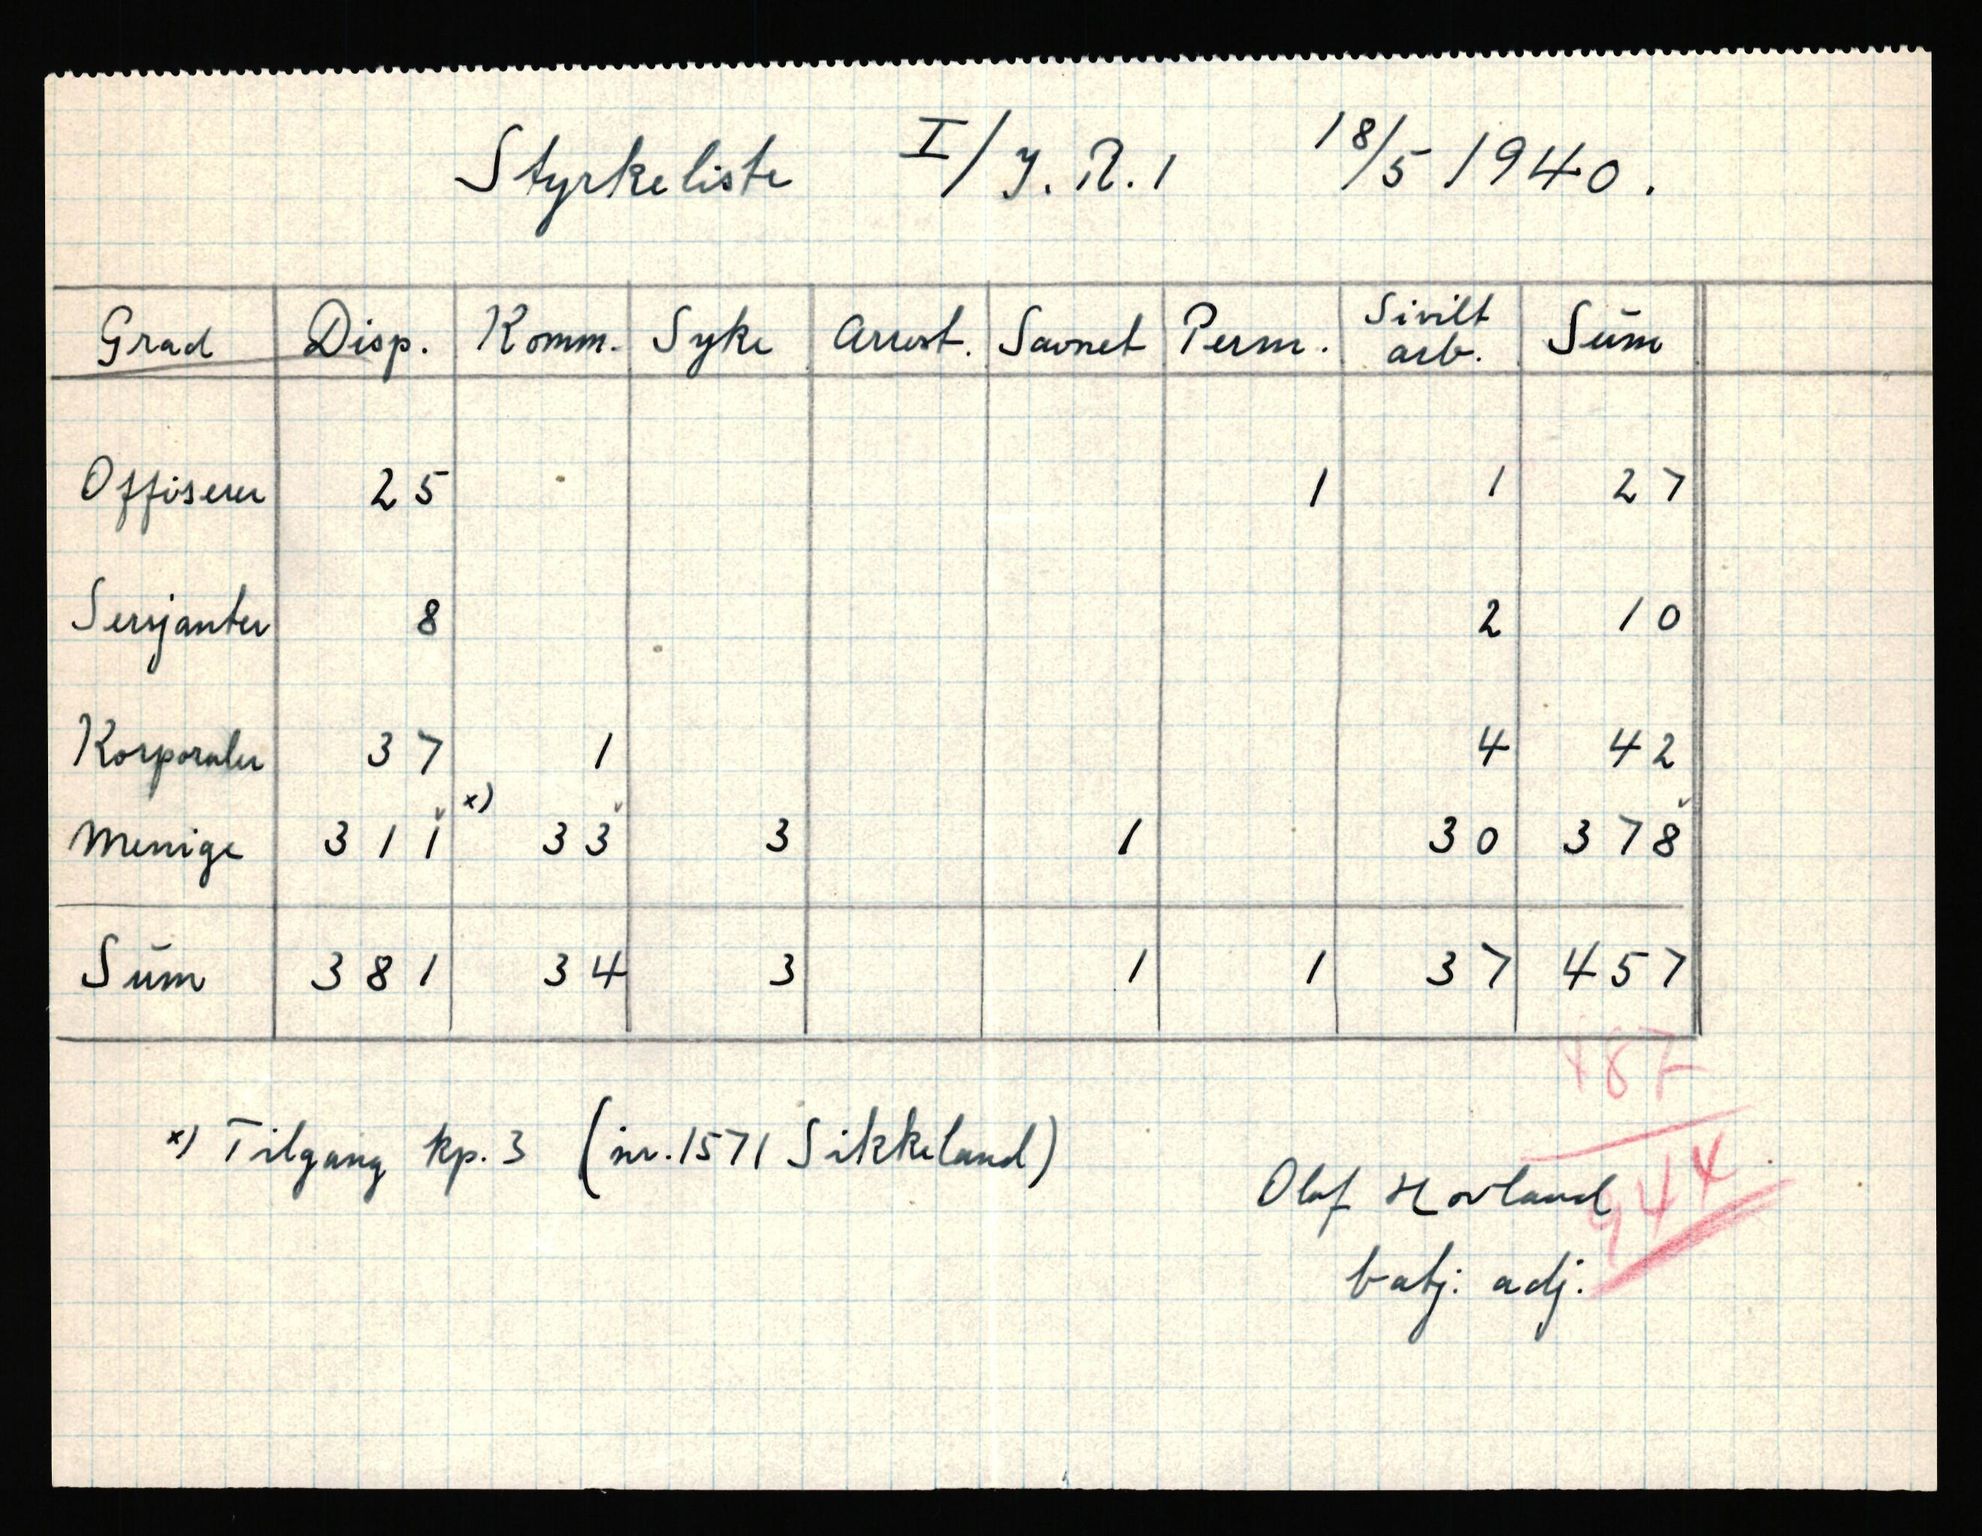 Styrkeliste I/J.R.1 18/5 1940.
Grad Disp. Komm. Syke Arrest. Savnet Perm. Sivilt arb. Sum
Offiserer 25 1 1 27
Sersjanter 8 2 10
Korporaler 37 1 4 42
Menige 311 x) 33 3 1 30 378
Sum 381 34 3 1 1 37 457
487
944
x) Tilgang kp. 3 (nr. 1571 Sikkeland)
Olaf Hovland
batj. adj.